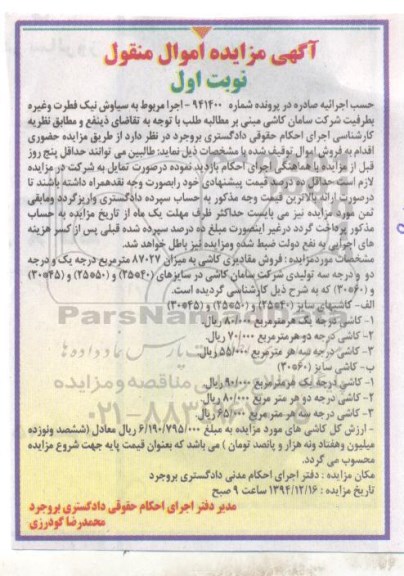 آگهی مزایده اموال منقول
نوبت اول
حسب اجرائیه صادره در پرونده شماره ۹۴۱۴۰۰ - اجرا مربوط به سیاوش نیک فطرت وغیره
بطرفیت شرکت سامان کاشی مبنی بر مطالبه طلب با توجه به تقاضای ذینفع و مطابق نظریه
کارشناسی اجرای احکام حقوقی دادگستری بروجرد در نظر دارد از طریق مزایده حضوری
اقدام به فروش اموال توقیف شده با مشخصات ذیل نماید: طالبین می توانند حداقل پنج روز
قبل از مزایده با هماهنگی اجرای احکام بازدید نموده درصورت تمایل به شرکت در مزایده
لازم است حداقل ده درصد قیمت پیشنهادی خود رابصورت وجه نقدهمراه داشته باشند تا
درصورت ارائه بالاترین قیمت وجه مذکور به حساب سپرده دادگستری واریزگردد ومابقی
ثمن مورد مزایده نیز می بایست حداکثر ظرف مهلت یک ماه از تاریخ مزایده به حساب
مذکور پرداخت گردد درغیر اینصورت مبلغ ده درصد سپرده شده قبلی پس از کسر هزینه
های اجرایی به نفع دولت ضبط شده ومزایده نیز باطل خواهد شد.
مشخصات موردمزایده : فروش مقادیری کاشی به میزان ۸۷۰۲۷ مترمربع درجه یک و درجه
دو و درجه سه تولیدی شرکت سامان کاشی در سایزهای (۴۰×۲۵) و (۵۰×۲۵) و (۴۵×۳۰)
و (۶۰×۳۰) که به شرح ذیل کارشناسی گردیده است.
الف- کاشیهای سایز (۴۰×۲۵) و (۵۰×۲۵) و (۴۵×۳۰)
۱- کاشی درجه یک هرمترمربع ۸۰/۰۰۰ ریال.
۲- کاشی درجه دو هرمترمربع ۷۰/۰۰۰ ریال.
۳- کاشی درجه سه هر مترمربع ۵۵/۰۰۰ ریال
ب- کاشی سایز (۶۰×۳۰)
۱- کاشی درجه یک هرمترمربع ۹۰/۰۰۰ ریال.
۲- کاشی درجه دو هر متر مربع ۸۰/۰۰۰ ریال.
۳- کاشی درجه سه هر متر مربع ۶۵/۰۰۰ ریال.
- ارزش کل کاشی های مورد مزایده به مبلغ ۶/۱۹۰/۷۹۵/۰۰۰ ریال معادل (ششصد ونوزده
میلیون وهفتاد ونه هزار و پانصد تومان ) می باشد که بعنوان قیمت پایه جهت شروع مزایده
محسوب می گردد.
مکان مزایده : دفتر اجرای احکام مدنی دادگستری بروجرد
تاریخ مزایده : ۱۳۹۴/۱۲/۱۶ ساعت ۹ صبح
مدیر دفتر اجرای احکام حقوقی دادگستری بروجرد
محمدرضا گودرزی